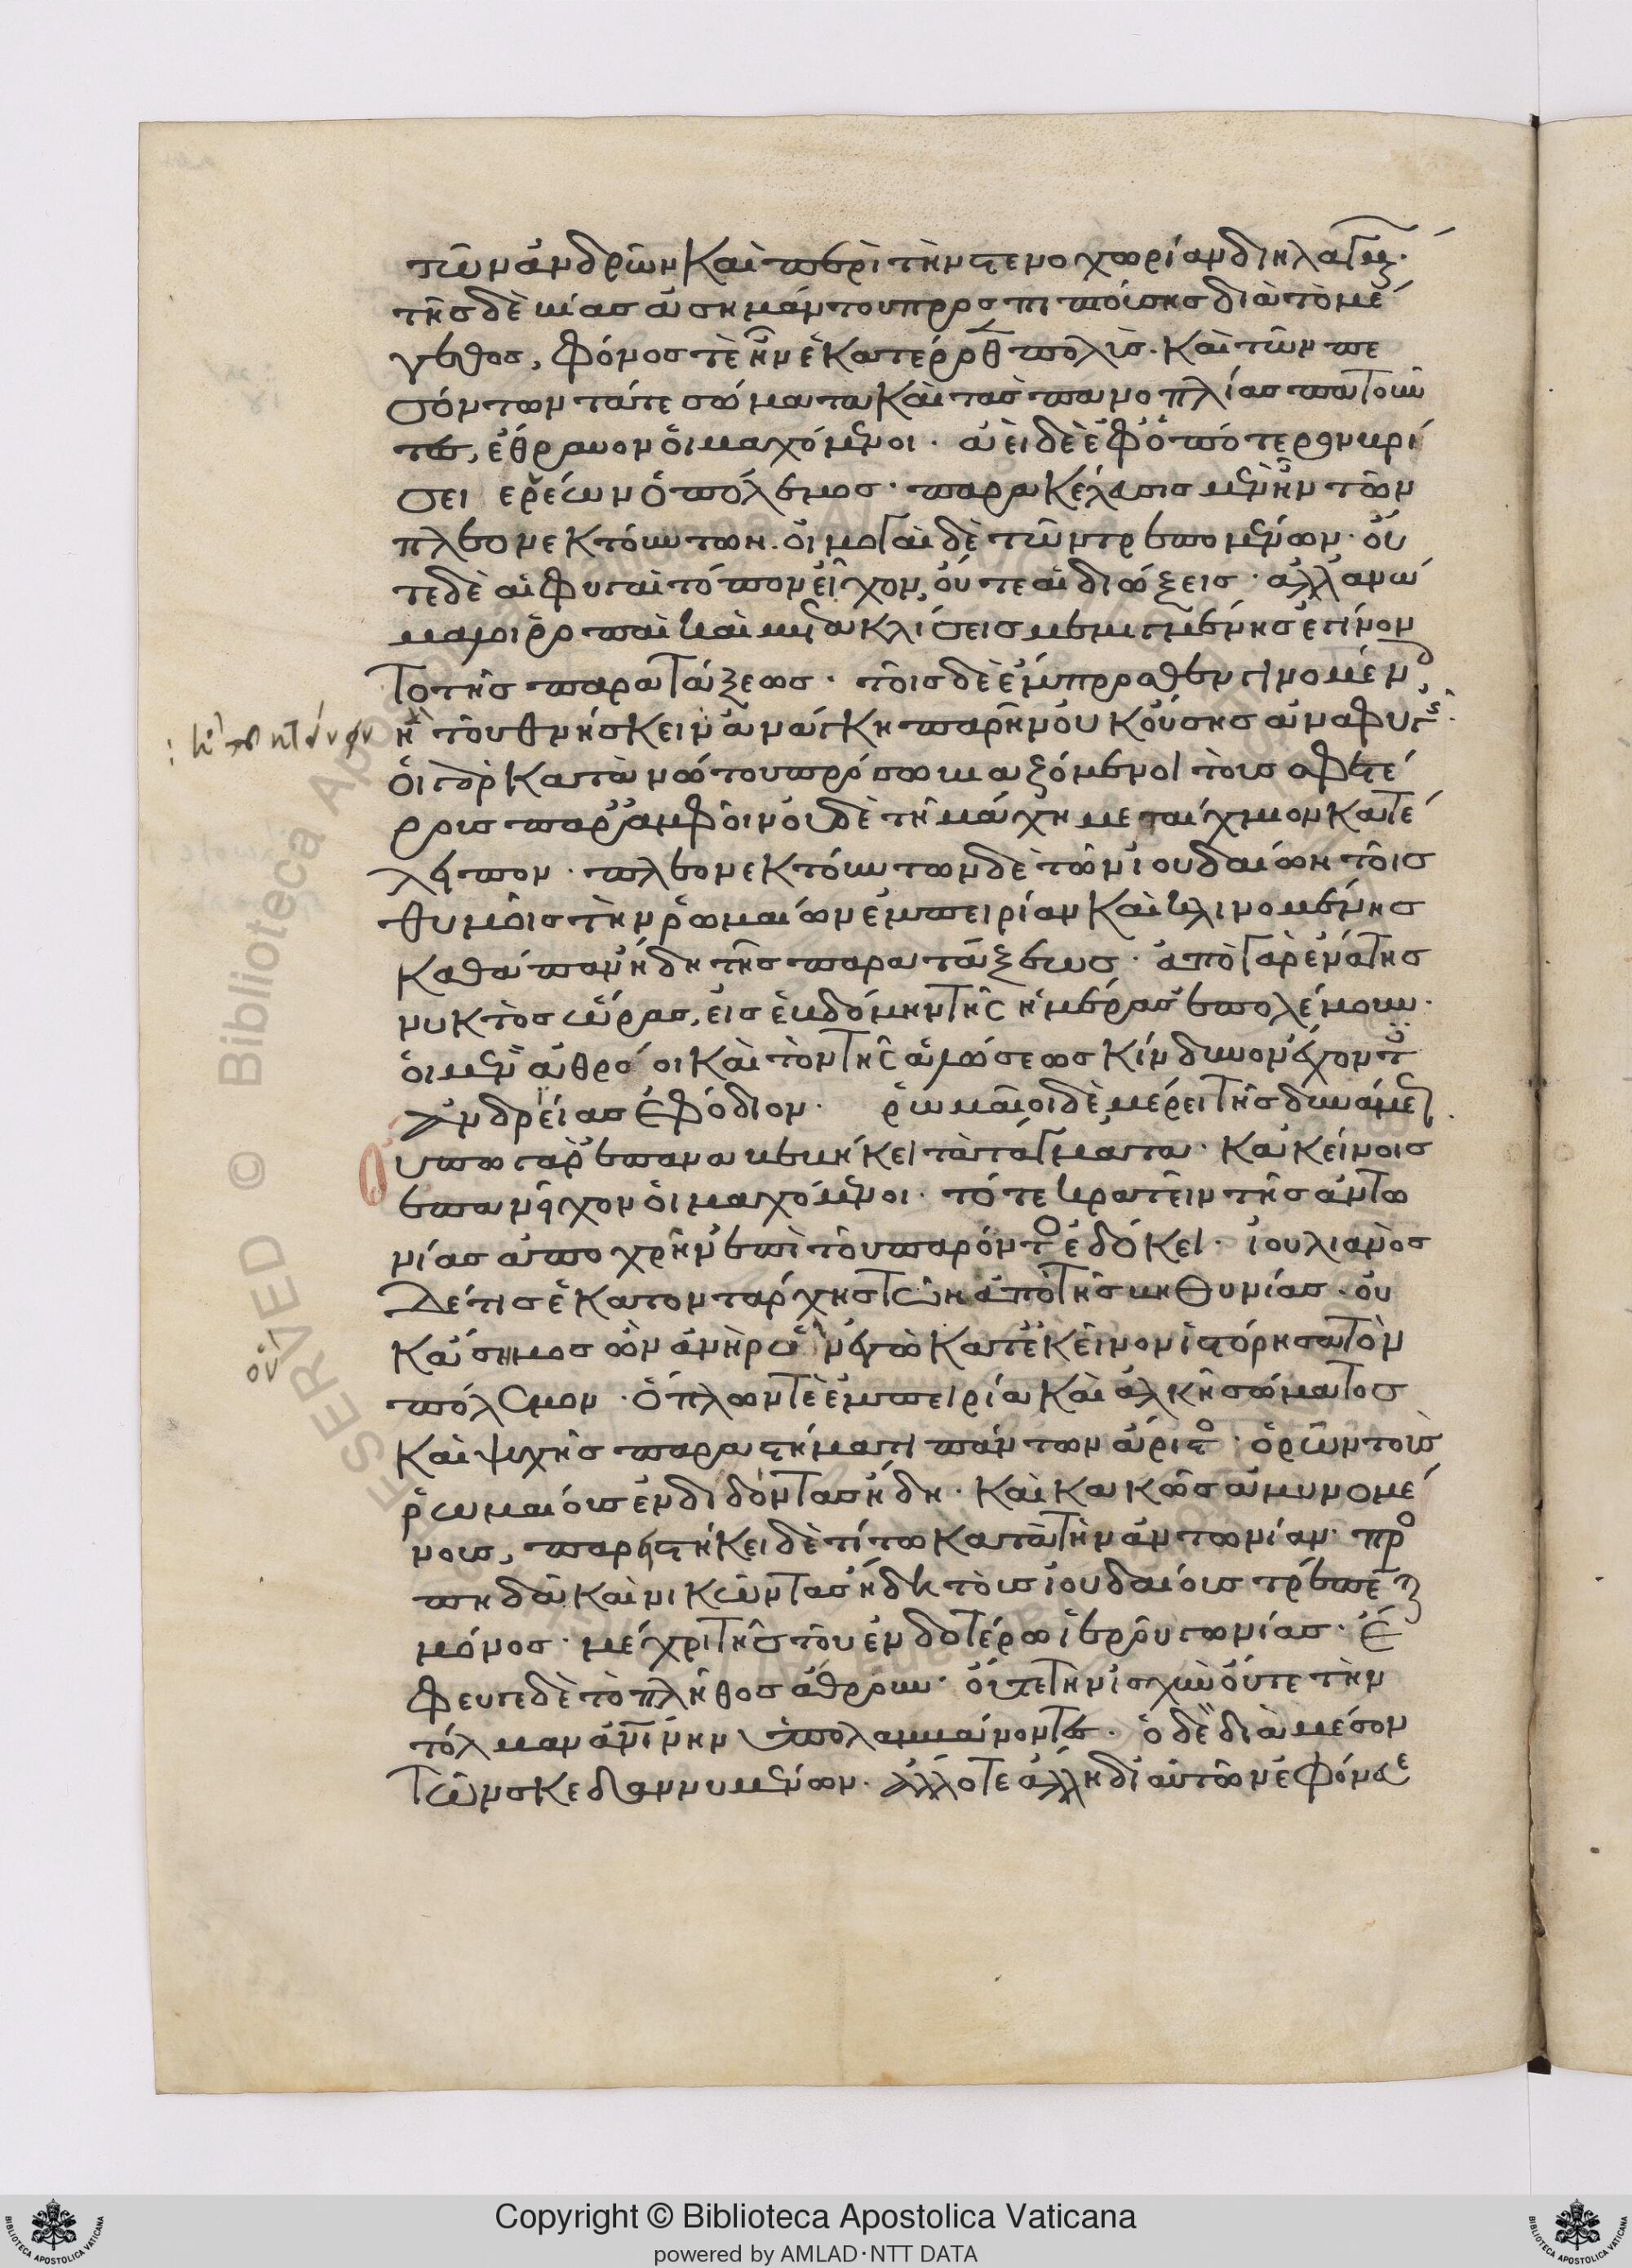 τῶν ἀνδρῶν καὶ περὶ τὴν στενοχωρίαν διηλλαγμ.
τῆς δὲ βίας ἀσημάντου προσπιπτούσης διὰ τὸ μέ
γεθος, φόνος τὲ ἦν ἑκατέρωθ πολύς. καὶ τῶν πε
σόντων τά τε σώματα καὶ τὰς πανοπλίας πατοῦν
τες, ἔθραυον οἱ μαχόμενοι. ἀεὶ δὲ ἐφ' ὁπότερον βρί
σει ῥέων ὁ πόλεμος. παρακέλευσις μὲν ἦν τῶν
πλεονεκτούντων. οἰμωγαὶ δὲ τῶν τρεπομένων. οὔ
τε δὲ αἱ φυγαὶ τόπον εἶχον, οὔτε αἱ διώξεις. ἀλλ' ἀγχώ
μαλοι ῥοπαὶ καὶ μετακλίσεις μεμιγμένης ἐγίνον
το τῆς παρατάξεως. τοῖς δὲ ἔμπροσθεν γινομένοις
ἢ τοῦ θνήσκειν ἀνάγκη παρῆν οὐκ οὔσης ἀναφυγῆς.
: ἢ τοῦ κτείνειν
οἱ γὰρ κατὰ νώτου πρόσω βιαζόμενοι τοὺς σφετέ
ρους παρ' ἀμφοῖν οὐδὲ τῇ μάχῃ μεταίχμιον κατέ
λειπον. πλεονεκτούντων δὲ τῶν ἰουδαίων τοῖς
θυμοῖς τὴν ῥωμαίων ἐμπειρίαν καὶ κλινομένης
καθάπαν ἤδη τῆς παρατάξεως. ἀπὸ γὰρ ἐνάτης
νυκτὸς ὥρας, εἰς ἑβδόμην τῆς ἡμέρας ἐπολέμουν.
οἱ μὲν ἀθρόοι καὶ τὸν τῆς ἁλώσεως κίνδυνον ἔχοντες
ἀνδρείας ἐφόδιον. ῥωμαῖοι δὲ μέρει τῆς δυνάμεως.
οὔπω γὰρ ἐπαναβεβήκει τὰ τάγματα. κἀκείνοις
ἐπανεῖχον οἱ μαχόμενοι. τότε κρατεῖν τῆς ἀντω
νίας ἀποχρῆν ἐπὶ τοῦ παρόντος ἐδόκει. ἰουλιανὸς
δέ τις ἑκατοντάρχης τῶν ἀπὸ τῆς βιθυνίας. οὐ
κ' ἄσημος ὢν ἀνὴρ ὧν ἐγὼ κατ' ἐκεῖνον ἱστόρησα τὸν
ὃν
πόλεμον. ὅπλων τὲ ἐμπειρίᾳ καὶ ἀλκῇ σώματος
καὶ ψυχῆς παραστήματι πάντων ἄριστος. ὁρῶν τοὺς
ῥωμαίους ἐνδιδόντας ἤδη. καὶ κακῶς ἀμυνομέ
νους, παρειστήκει δὲ τίτῳ κατὰ τὴν ἀντωνίαν. προ
πηδᾷ καὶ νικῶντας ἤδη τοὺς ἰουδαίους τρέπεται
μόνος. μέχρι τῆς τοῦ ἐνδοτέρω ἱεροῦ γωνίας. ἔ
φευγε δὲ τὸ πλῆθος ἄθρουν. οὔτε τὴν ἰσχὺν οὔτε τὴν
τόλμαν ἀνθρωπίνην ὑπολαμβάνοντες. ὁ δὲ διὰ μέσον
τῶν σκεδαννυμένων. ἄλλοτε ἄλλῃ δι' αὐτῶν ἐφόνευε
Copyright © Biblioteca Apostolica Vaticana
powered by AMLAD·NTT DATA